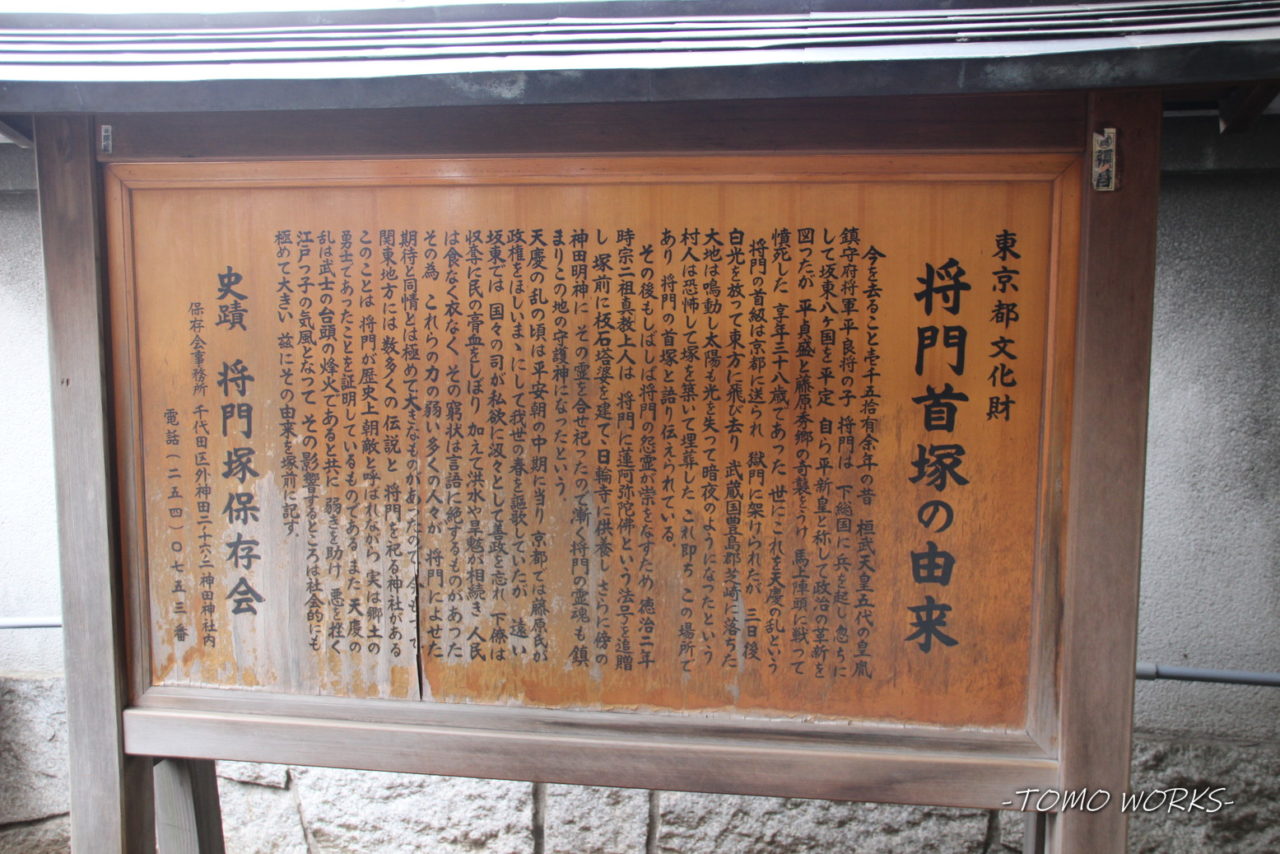 東京都文化財
将門首塚の由来
今を去ること壱千五拾有余年の昔 桓武天皇五代の皇胤
鎮守府将軍平良将の子 将門は 下総国に兵を起し忽ちに
して坂東八ケ国を平定 自ら平新皇と称して政治の革新を
図つたが 平貞盛と藤原秀郷の奇襲をうけ 馬上陣頭に戦って
憤死した 享年三十八歳であった 世にこれを天慶の乱という
将門の首級は京都に送られ 獄門に架けられたが 三日後
白光を放って東方に飛び去り 武蔵国豊島郡芝崎に落ちた
大地は鳴動し太陽も光を失って暗夜のようになったという
村人は恐怖して塚を築いて埋葬した これ即ち この場所で
あり 将門の首塚と語り伝えられている
その後もしばしば将門の怨霊が祟をなすため 徳治二年
時宗二祖真教上人は 将門に蓮阿弥陀佛という法号を追贈
し 塚前に板石塔婆を建てい日輪寺に供養し さらに傍の
神田明神に その霊を合せ祀ったので漸く将門の霊魂も鎮
まりこの地の守護神になったという
天慶の乱の頃は平安朝の中期に当り 京都では藤原氏が
政権をほしいまゝにして我世の春を謳歌していたが 遠い
坂東では 国々の司が私欲に汲々として善政を忘れ 下僚は
収奪に民の膏血をしぼり 加えて洪水や旱魃が相続き 人民
は食なく衣なく その窮状は言語に絶するものがあった
その為 これらの力の弱い多くの人々が 将門によせた
期待と同情とは極めて大きなものがあったので 今もって
関東地方には数多くの伝説と 将門を祀る神社がある
このことは 将門が歴史上朝敵と呼ばれながら 実は郷土の
勇士であったことを証明しているものである また天慶の
乱は武士の台頭の烽火であると共に 弱きを助け 悪を挫く
江戸っ子の気風となって その影響するところは社会的にも
極めて大きい 茲にその由来を塚前に記す
史蹟 将門塚保存会
保存会事務所 千代田区外神田二十六ノ二神田神社内
電話(二五四)〇七五三番
-TOMO WORKS-